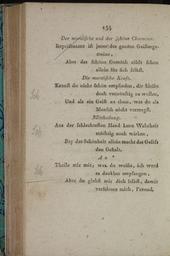 154
Der moralische und der schöne Character.
Repräsentant ist jener der ganzen Geisterge-
meine,
Aber das schöne Gemüth zählt schon
allein für sich selbst.
Die moralische Kraft.
Kannst du nicht schön empfinden, dir bleibt
doch vernünftig zu wollen,
Und als ein Geist zu thun, was du als
Mensch nicht vermagst.
Mittheilung.
Aus der schlechtesten Hand kann Wahrheit
mächtig noch wirken,
Bey dem Schönen allein macht das Gefäß
den Gehalt.
An *
Theile mir mit, was du weißt, ich werd
es dankbar empfangen,
Aber du giebst mir dich selbst, damit
verschone mich, Freund.